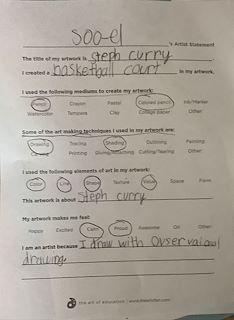 soo-el
's Artist Statement
The title of my artwork is steph curry
I created a basketball court in my artwork.
I used the following mediums to create my artwork:
Pencil Crayon Pastel Colored pencil Ink/Marker
Watercolor Tempera Clay Collage paper Other:
Some of the art making techniques I used in my artwork are:
Drawing Tracing Shading Outlining Painting
Carving Printing Gluing/Attaching Cutting/Tearing Other:
I used the following elements of art in my artwork:
Color Line Shape Texture Value Space Form
This artwork is about steph curry
My artwork makes me feel:
Happy Excited Calm Proud Awesome Other:
I am an artist because I draw with ovservaional
drawing
the art of education